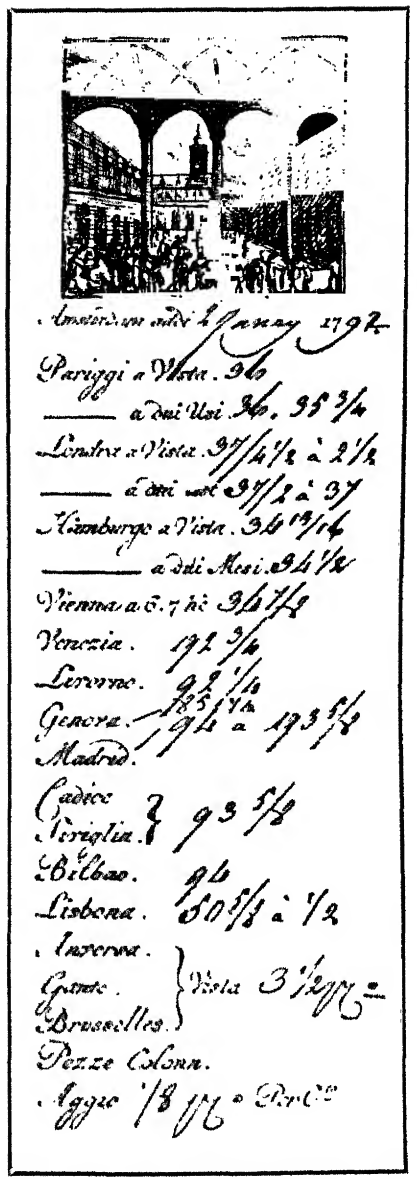 Amsterdam addi 2 Janay 1792
Pariggi a Vista. 36
——— a dui Usi 36. 35 3/4
Londra a Vista. 37/4 1/2 à 2 1/2
——— a dui 37/2 à 37
Hamburgo a Vista. 34 13/16
——— a ddi Mesi. 34 1/2
Vienna a 6. 7 hè 34 7/8
Venezia. 192 3/4
Livorno. 92 1/4
Genova. 85 1/4
Madrid. 94 à 193 5/8
Cadice
Siviglia. } 93 5/8
Bilbao. 94
Lisbona. 50 5/8 à 1/2
Anversa.
Gante. } Vista 3 1/2
Brusselles.
Pezze Colonn.
Aggio 1/8 Per Co